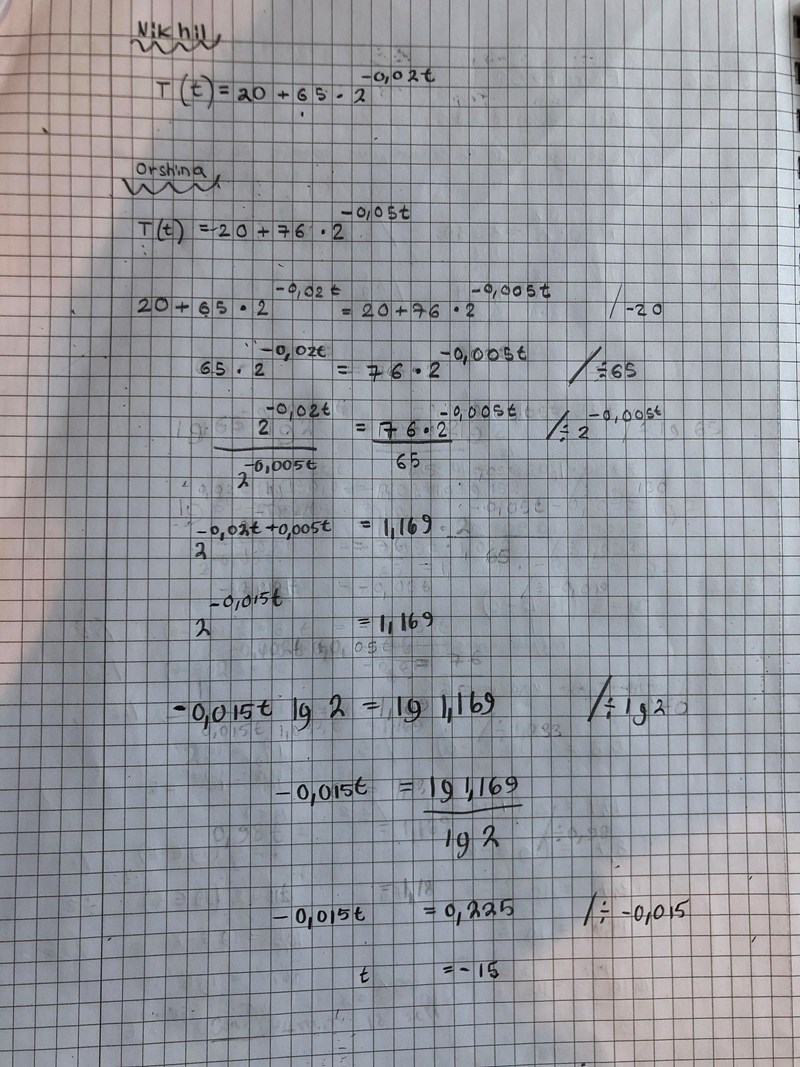 Nikhil
T(t) = 20 + 65 · 2^-0,02t
Orshina
T(t) = 20 + 76 · 2^-0,05t
20 + 65 · 2^-0,02t = 20 + 76 · 2^-0,005t /-20
65 · 2^-0,02t = 76 · 2^-0,005t /÷65
2^-0,02t / 2^-0,005t = 76 · 2^-0,005t / 65 /÷2^-0,005t
2^-0,02t+0,005t = 1,169
2^-0,015t = 1,169
-0,015t lg 2 = lg 1,169 /÷lg2
-0,015t = lg 1,169 / lg 2
-0,015t = 0,225 /÷ -0,015
t = -15